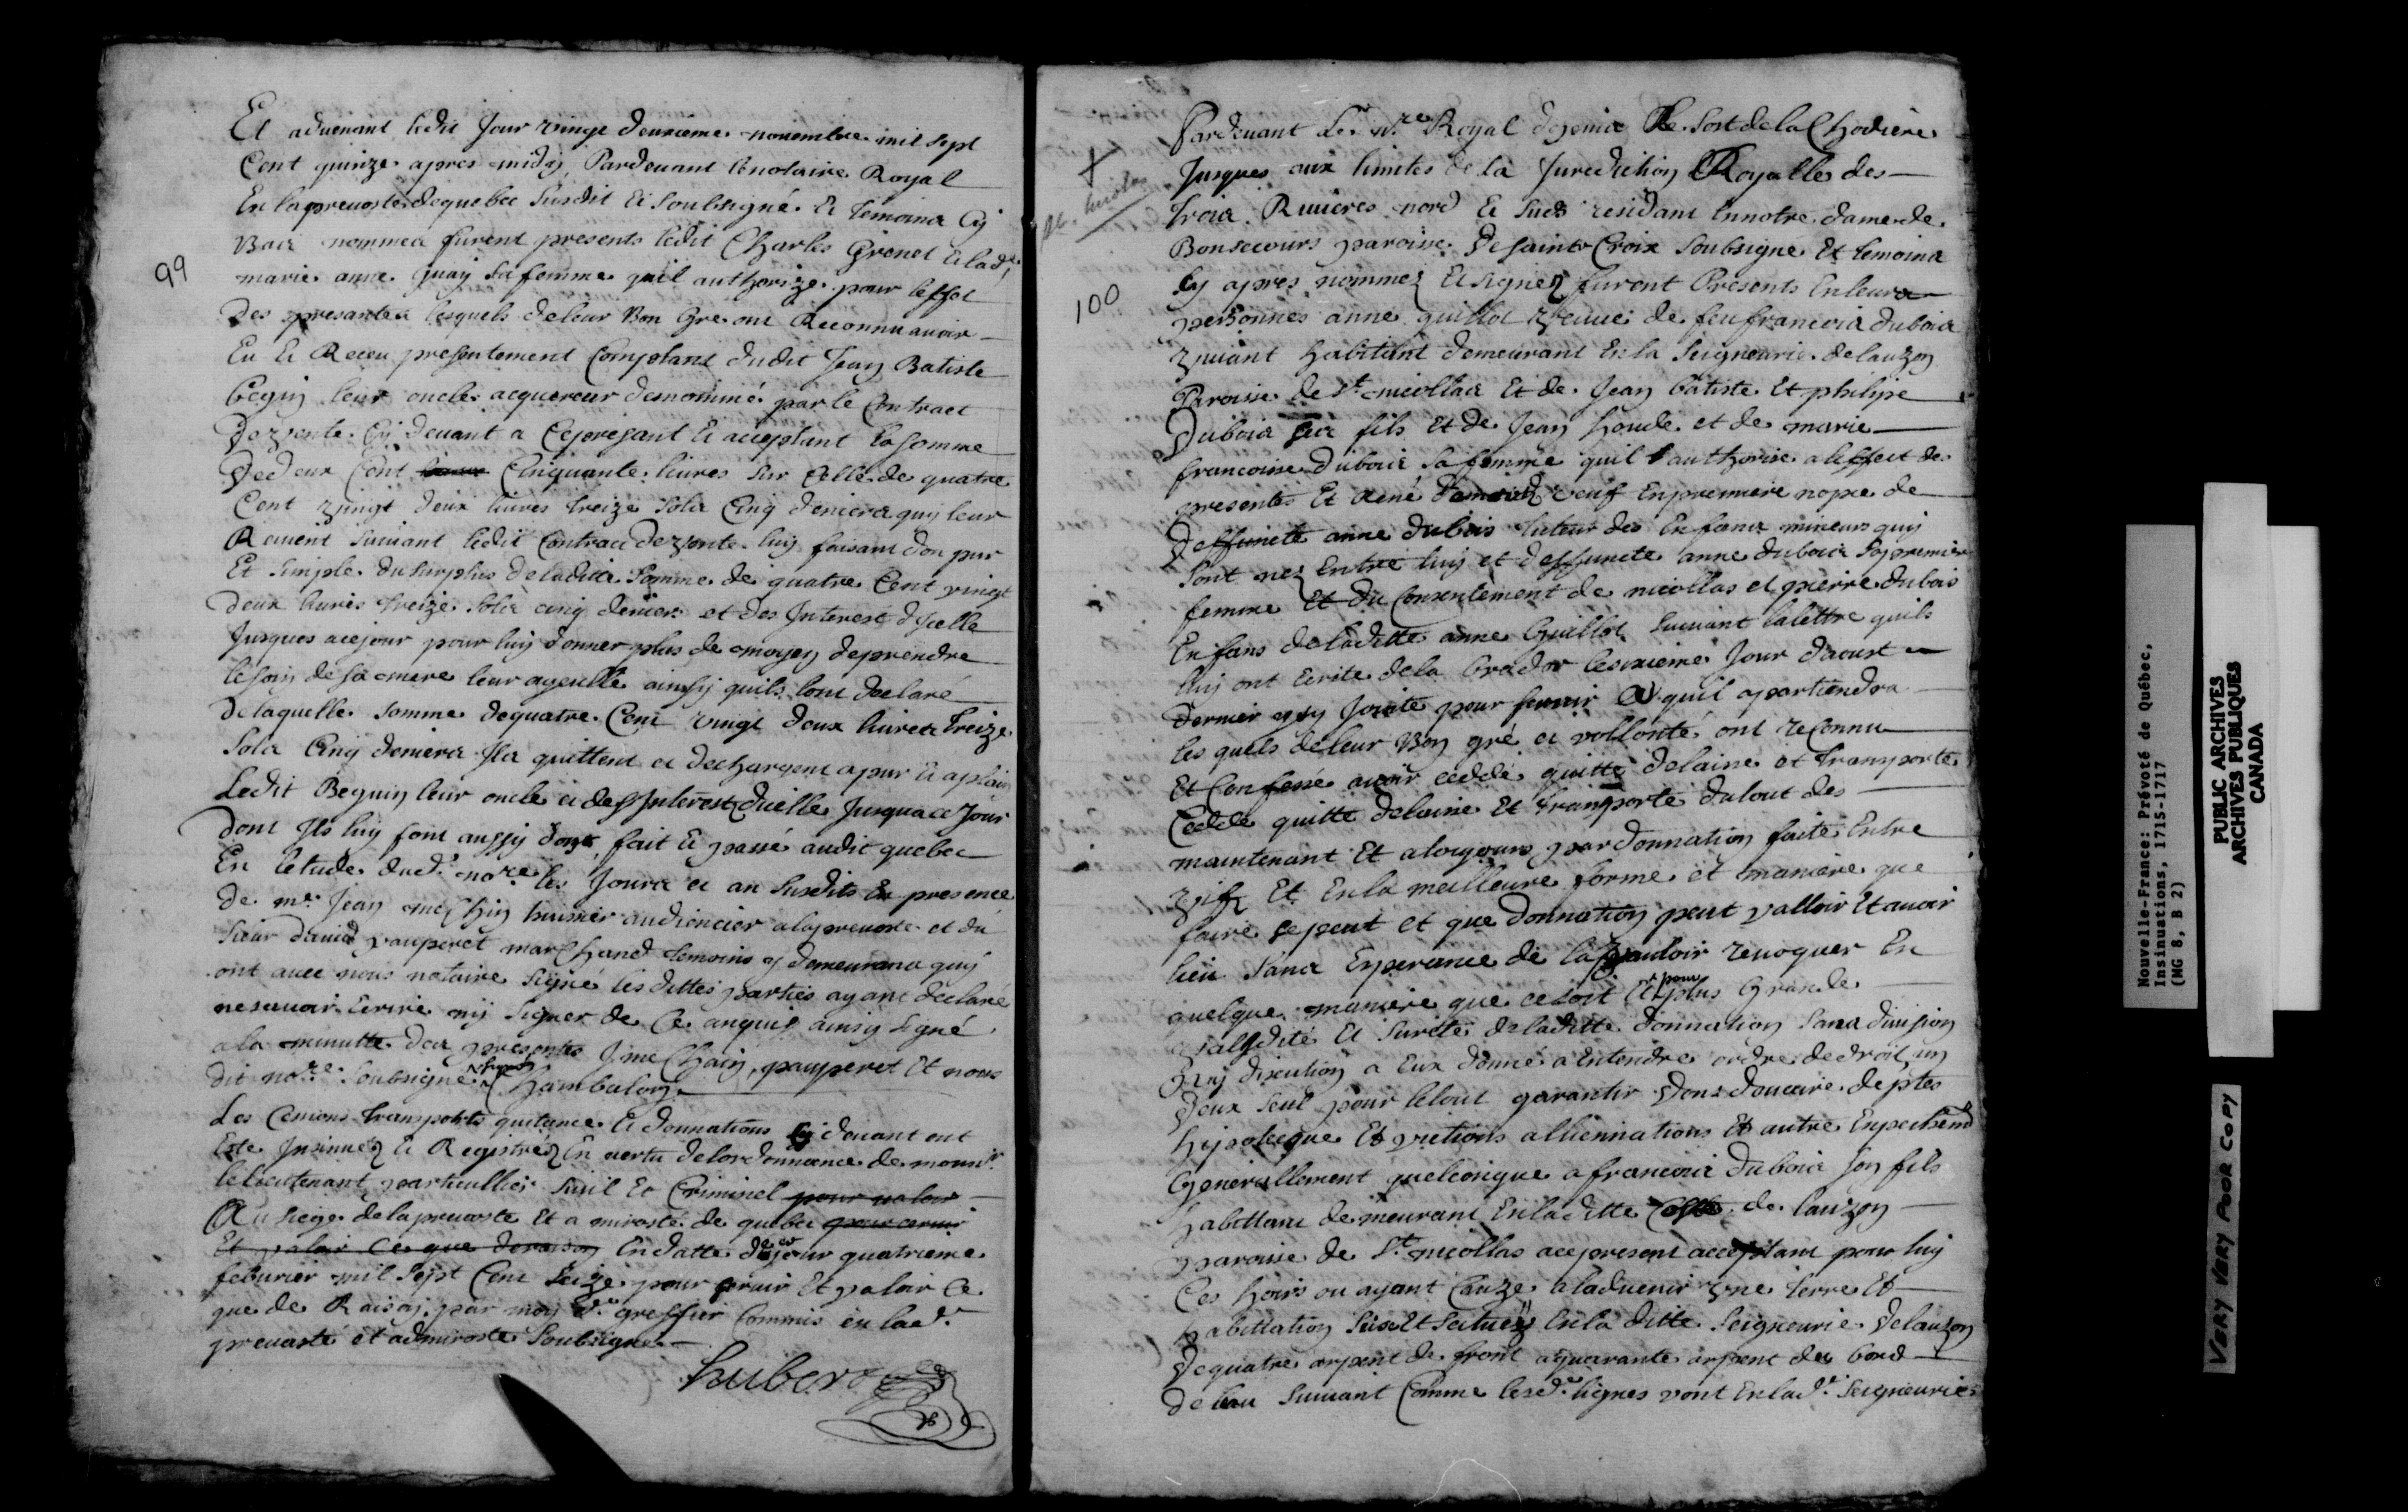 99
Et aduenant ledit Jour vingt deuxieme nouembre mil sept
Cent quinze apres midy, Pardeuant le notaire Royal
En la preuosté de quebec susdit Et soubsigné Et temoins Cy
Bas nommez furent presents ledit Charles Grenet Et lad.e
marie anne guay sa femme quil authorize pour leffet
Des presantes lesquels de leur Bon Gre ont Reconnu auoir
Eu Et Receu presentement Comptant dudit Jean Batiste
Beguin leur oncle acquereur denommé par le Contract
De vente Cy deuant a Ce present Et acceptant la somme
De deux Cent Cinquante liures sur Celle de quatre
Cent vingt deux liures treize sols Cinq deniers quy leur
Reuient suiuant ledit Contract de vente luy faisant don pur
Et simple du surplus de laditte somme de quatre Cent vingt
deux liures treize sols cinq deniers et des Interest dicelle
Jusques a ce jour pour luy donner plus de moyen de prendre
le soin de sa mere leur ayeulle ainsy quils lont declaré
de laquelle somme de quatre Cent vingt deux liures treize
sols Cinq deniers Ils quittent et dechargent a pur Et a plain
Ledit Beguin leur oncle et des Interest dicelle Jusqua ce Jour
dont Ils luy font aussy don fait Et passé audit quebec
En letude dud.t no.re les Jours et an susdits En presence
de m.e Jean meschin huissier audiencier a la preuosté et du
sieur dauid pauperet marchand temoins y demeurans quy
ont auec nous notaire signé les dittes parties ayant declaré
ne sauoir Ecrire ny signer de Ce anquis ainsy signé
a la minutte des presentes J meschain, pauperet Et nous
dit no.re soubsigné signé Chambalon
Les Cessions transports quitance Et donnations Cy deuant ont
Este Insinuéz Et Registréz En vertu de lordonnance de monsr
le lieutenant particullier siuil Et Criminel pour valoir
Au siege de la preuosté Et amirosté de quebec pour seruir
Et valoir Ce que de raison En datte de ce jour quatrieme
feburier mil sept Cent seize pour seruir Et valoir Ce
que de Raison par moy d.t greffier Commis en lad.e
preuosté et admirosté soubsigné
hubert
100
Pardeuant Le N.re Royal depuis Le Sort de la Chodiere
Jusques aux limites de la Jurediction Royalle des
trois Riuieres nord Et sud residant En notre dame de
Bonsecours paroisse de sainte Croix soubsigné Et temoins
Cy apres nommez Et signez furent Presents En leurs
personnes anne guillot veuue de feu francois dubois
viuant habitant demeurant En la seigneurie de lauzon
Paroisse de St nicollas Et de Jean batiste Et philipe
Dubois ses fils Et de Jean houde et de marie
francoise Dubois sa femme quil authorise a leffect des
presentes Et René veuf En premiere nopce de
Deffuncte anne dubois tuteur des Enfans mineurs quy
sont nez Entre luy et deffuncte anne dubois sa premiere
femme Et du Consentement de nicollas et pierre dubois
Enfans de laditte anne Guillot suiuant la lettre quils
luy ont Ecrite de la brador le sixieme Jour daoust
dernier cy Jointe pour seruir a quil apartiendra
les quels de leur Bon gré et vollonté ont reConnu
Et Confessé auoir ceddé quitté delaissé et transporté
Cedde quitte delaisse Et transporte du tout des
maintenant Et a toujours par donnation faite Entre
vifz Et En la meilleure forme et maniere que
faire se peut et que donnation peut valloir Et auoir
lieu sans Esperance de la pouuoir reuoquer En
quelque maniere que ce soit Et pour plus Grande
validité Et sureté de laditte donnation sans diuision
ny discution a Eux donné a Entendre ordre de droit, un
deux seul pour le tout garantir dons douaire deptes
hipotecque Et alliennations Et autre Enpechemt
Generallement quelconque a francois dubois son fils
habittant demeurant En la ditte Coste de lauzon
paroisse de St nicollas a ce present acceptant pour luy
Ces hoirs ou ayant Cauze a laduenir vne terre Et
habittation size Et scituéz En la ditte seigneurie de lauzon
de quatre arpent de front a quarante arpent des bord
de leau suiuant Comme les d.e lignes vont En lad.e seigneurie
Nouvelle-France: Prévoté de Québec,
Insinuations, 1715-1717
(MG 8, B 2)
PUBLIC ARCHIVES
ARCHIVES PUBLIQUES
CANADA
VERY VERY POOR COPY